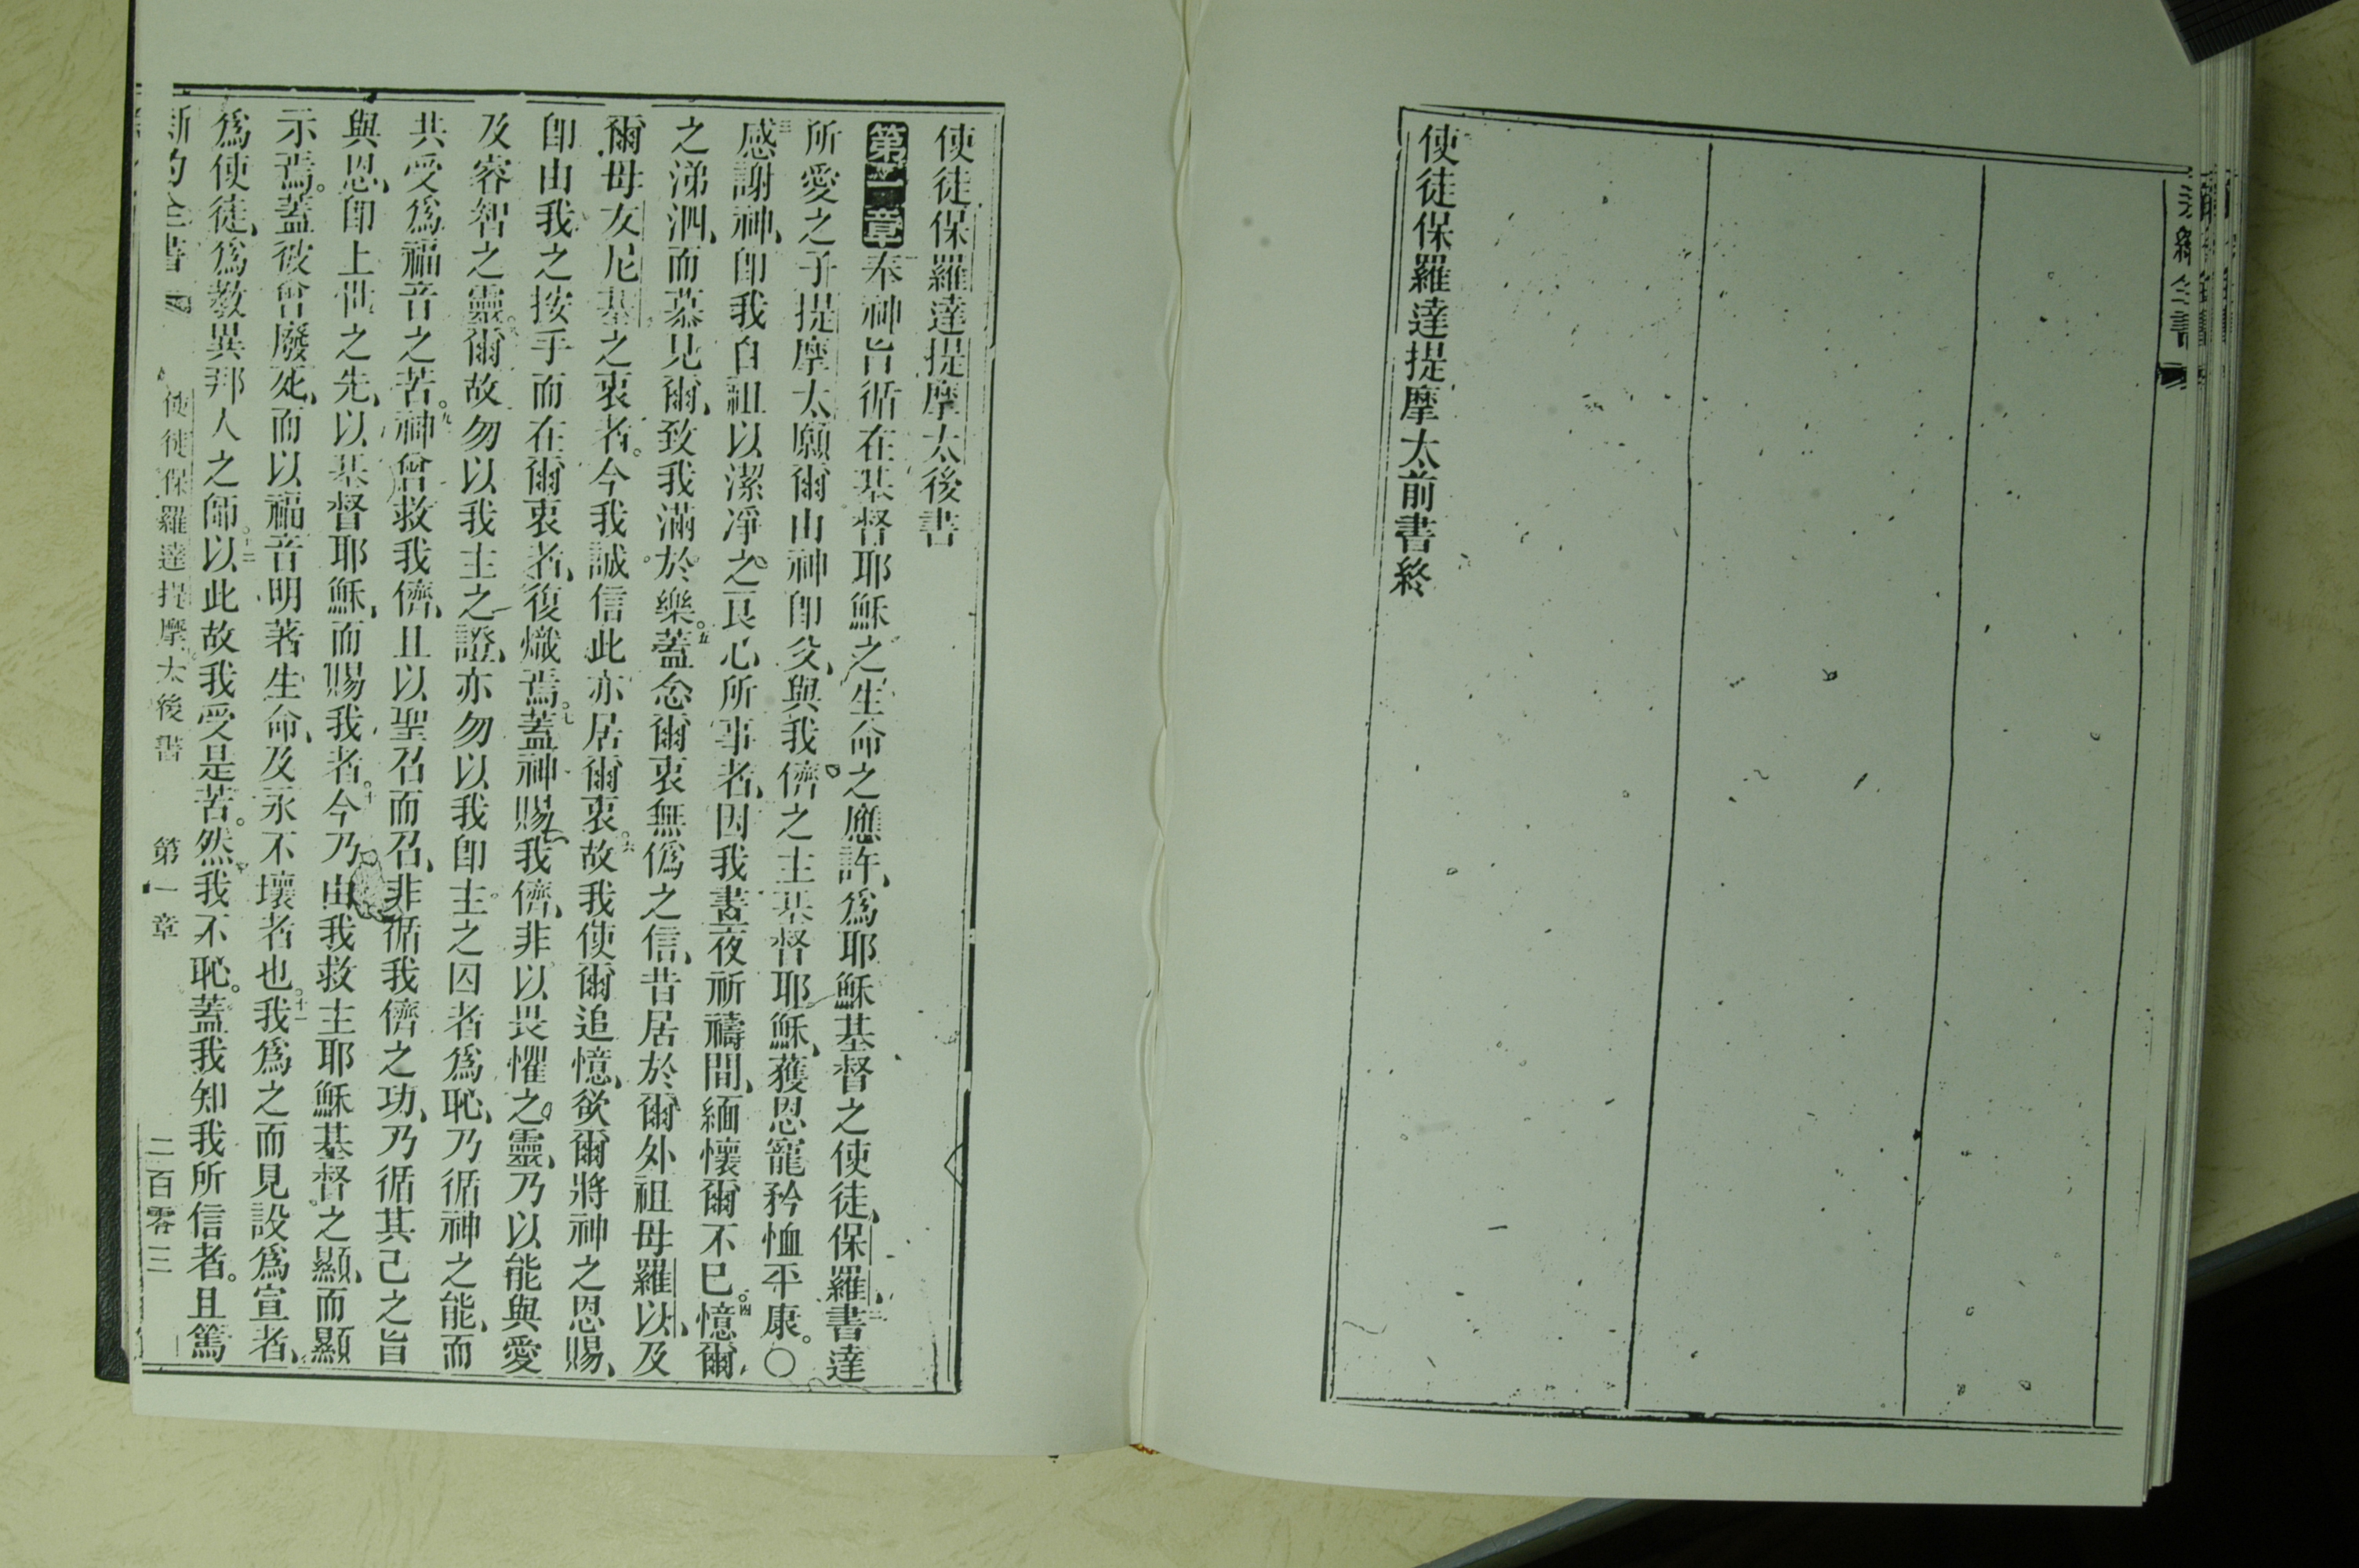 使徒保羅達提摩太前書終
使徒保羅達提摩太後書
第一章奉神旨循在基督耶穌之生命之應許、爲耶穌基督之使徒、保羅、二書達
所愛之子提摩太願爾由神卽父、與我儕之主基督耶穌、獲恩寵矜恤平康。○
三感謝神、卽我自祖以潔凈之良心所事者、因我晝夜祈禱間、緬懷爾不已。四憶爾
之涕泗、而慕見爾、致我滿於樂。五蓋念爾衷無僞之信、昔居於爾外祖母羅以、及
爾母友尼基之衷者。今我誠信此亦居爾衷。六故我使爾追憶、欲爾將神之恩賜、
卽由我之按手而在爾衷者、復熾焉。七蓋神賜我儕、非以畏懼之靈、乃以能與愛
及睿智之靈。八爾故勿以我主之證、亦勿以我卽主之囚者爲恥、乃循神之能、而
共受爲福音之苦。九神曾救我儕、且以聖召而召、非循我儕之功、乃循其己之旨
與恩、卽上世之先、以基督耶穌、而賜我者。十今乃由我救主耶穌基督之顯、而顯
示焉。蓋彼曾廢死、而以福音明著生命、及永不壞者也。十一我爲之而見設爲宣者、
爲使徒、爲教異邦人之師。十二以此故我受是苦。然我不恥。蓋我知我所信者。且篤
新約全書
使徒保羅達提摩太後書
第一章
二百零三